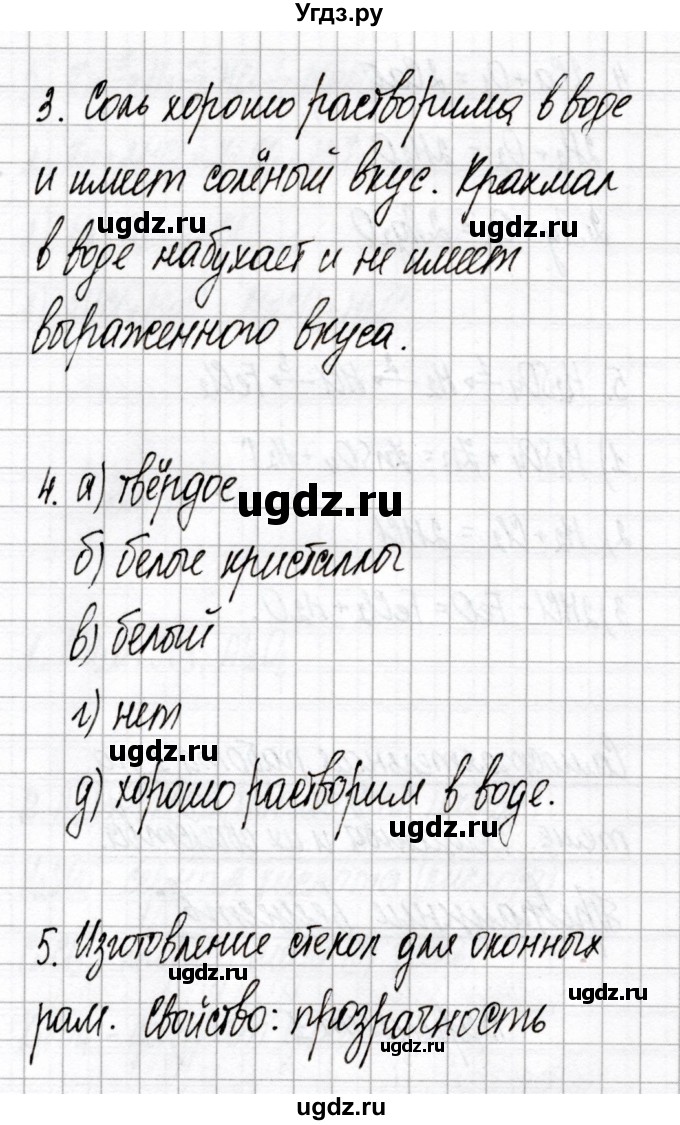 Угдз.ру
3. Соль хорошо растворима в воде
и имеет солёный вкус. Крахмал
ugdz.ru ugdz.ru
в воде набухает и не имеет
выраженного вкуса.
4. а) твёрдое
ugdz.ru
б) белые кристаллы
в) белый
г) нет
ugdz.ru
д) хорошо растворим в воде.
ugdz.ru
5. Изготовление стекол для оконных
ugdz.ru
ugdz.ru
рам. Свойство: прозрачность
ugdz.ru
ugdz.ru